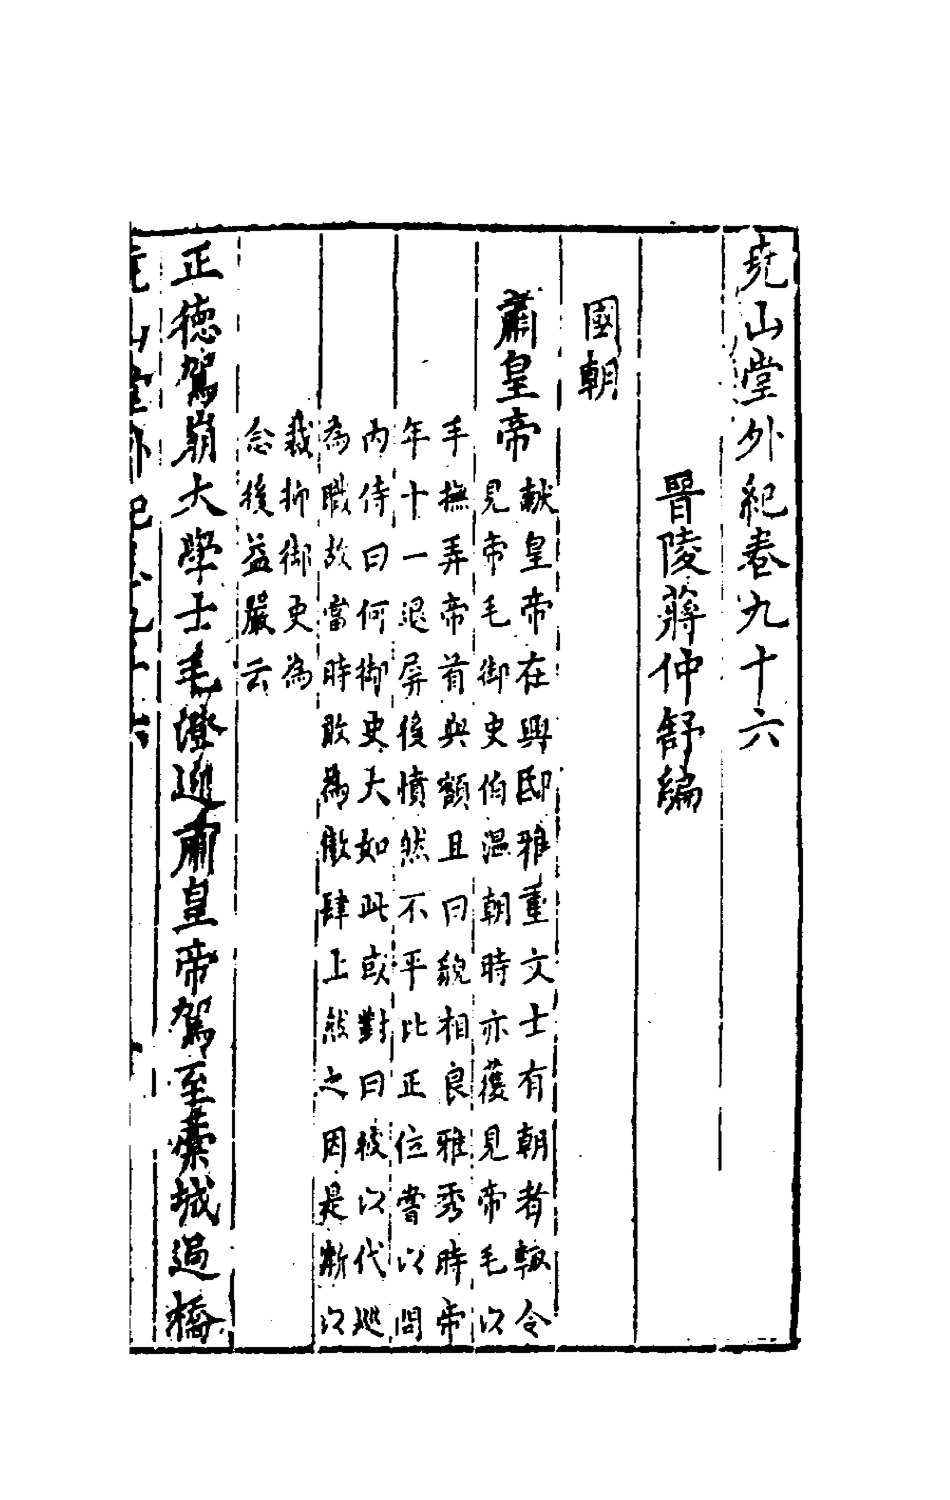 尭山堂外紀卷九十六
晉陵蔣仲舒編
國朝
肅皇帝
獻皇帝在興邸雅重文士有朝者輙令
見帝毛御史伯温朝時亦獲見帝毛以
手撫弄帝首與額且曰貌相良雅秀時帝
年十一退屏後憤然不平比正位嘗以問
内侍曰何御史大如此或對曰彼以代巡
為職故當時敢為傲肆上然之因是漸以
裁抑御史為
念後益嚴云
正德駕崩大學士毛澄迎肅皇帝駕至藁城過橋